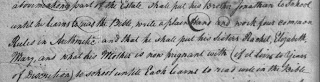 making part of the Estate Shall put his Brother Jonathan to School
until he learns to read the Bible, write a plain hand and work four common
Rules in Arithmetic and that he shall put his Sisters Elizabeth
Mary, and what his Mother is now pregnant with (if it Lives to Years
of Discretion) to School until Each Learns to read well in the Bible